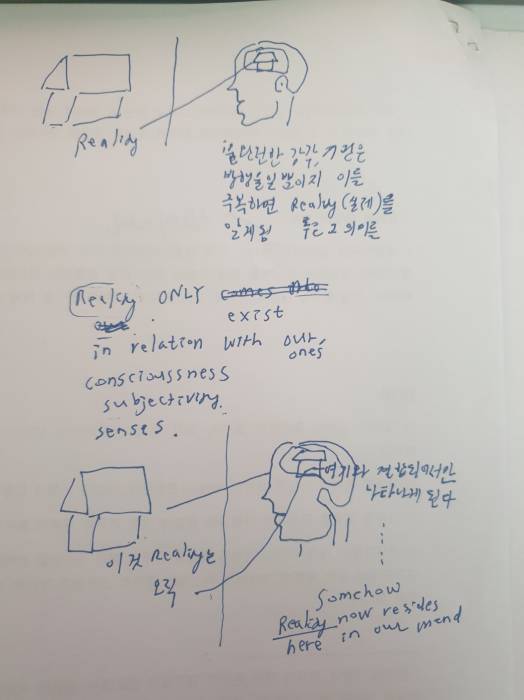 Reality
불완전한 감각, 기관은
방행물일 뿐이지 이를
극복하면 Reality (실제)를
알게됨 혹은 그 의미를
Reality ONLY comes into
exist
in relation with our, ones
consciousness
subjectivity.
senses.
여기와 접합되어서만
나타나게 된다
이것 Reality는
오직
Somehow
Reality now resides
here in our mend